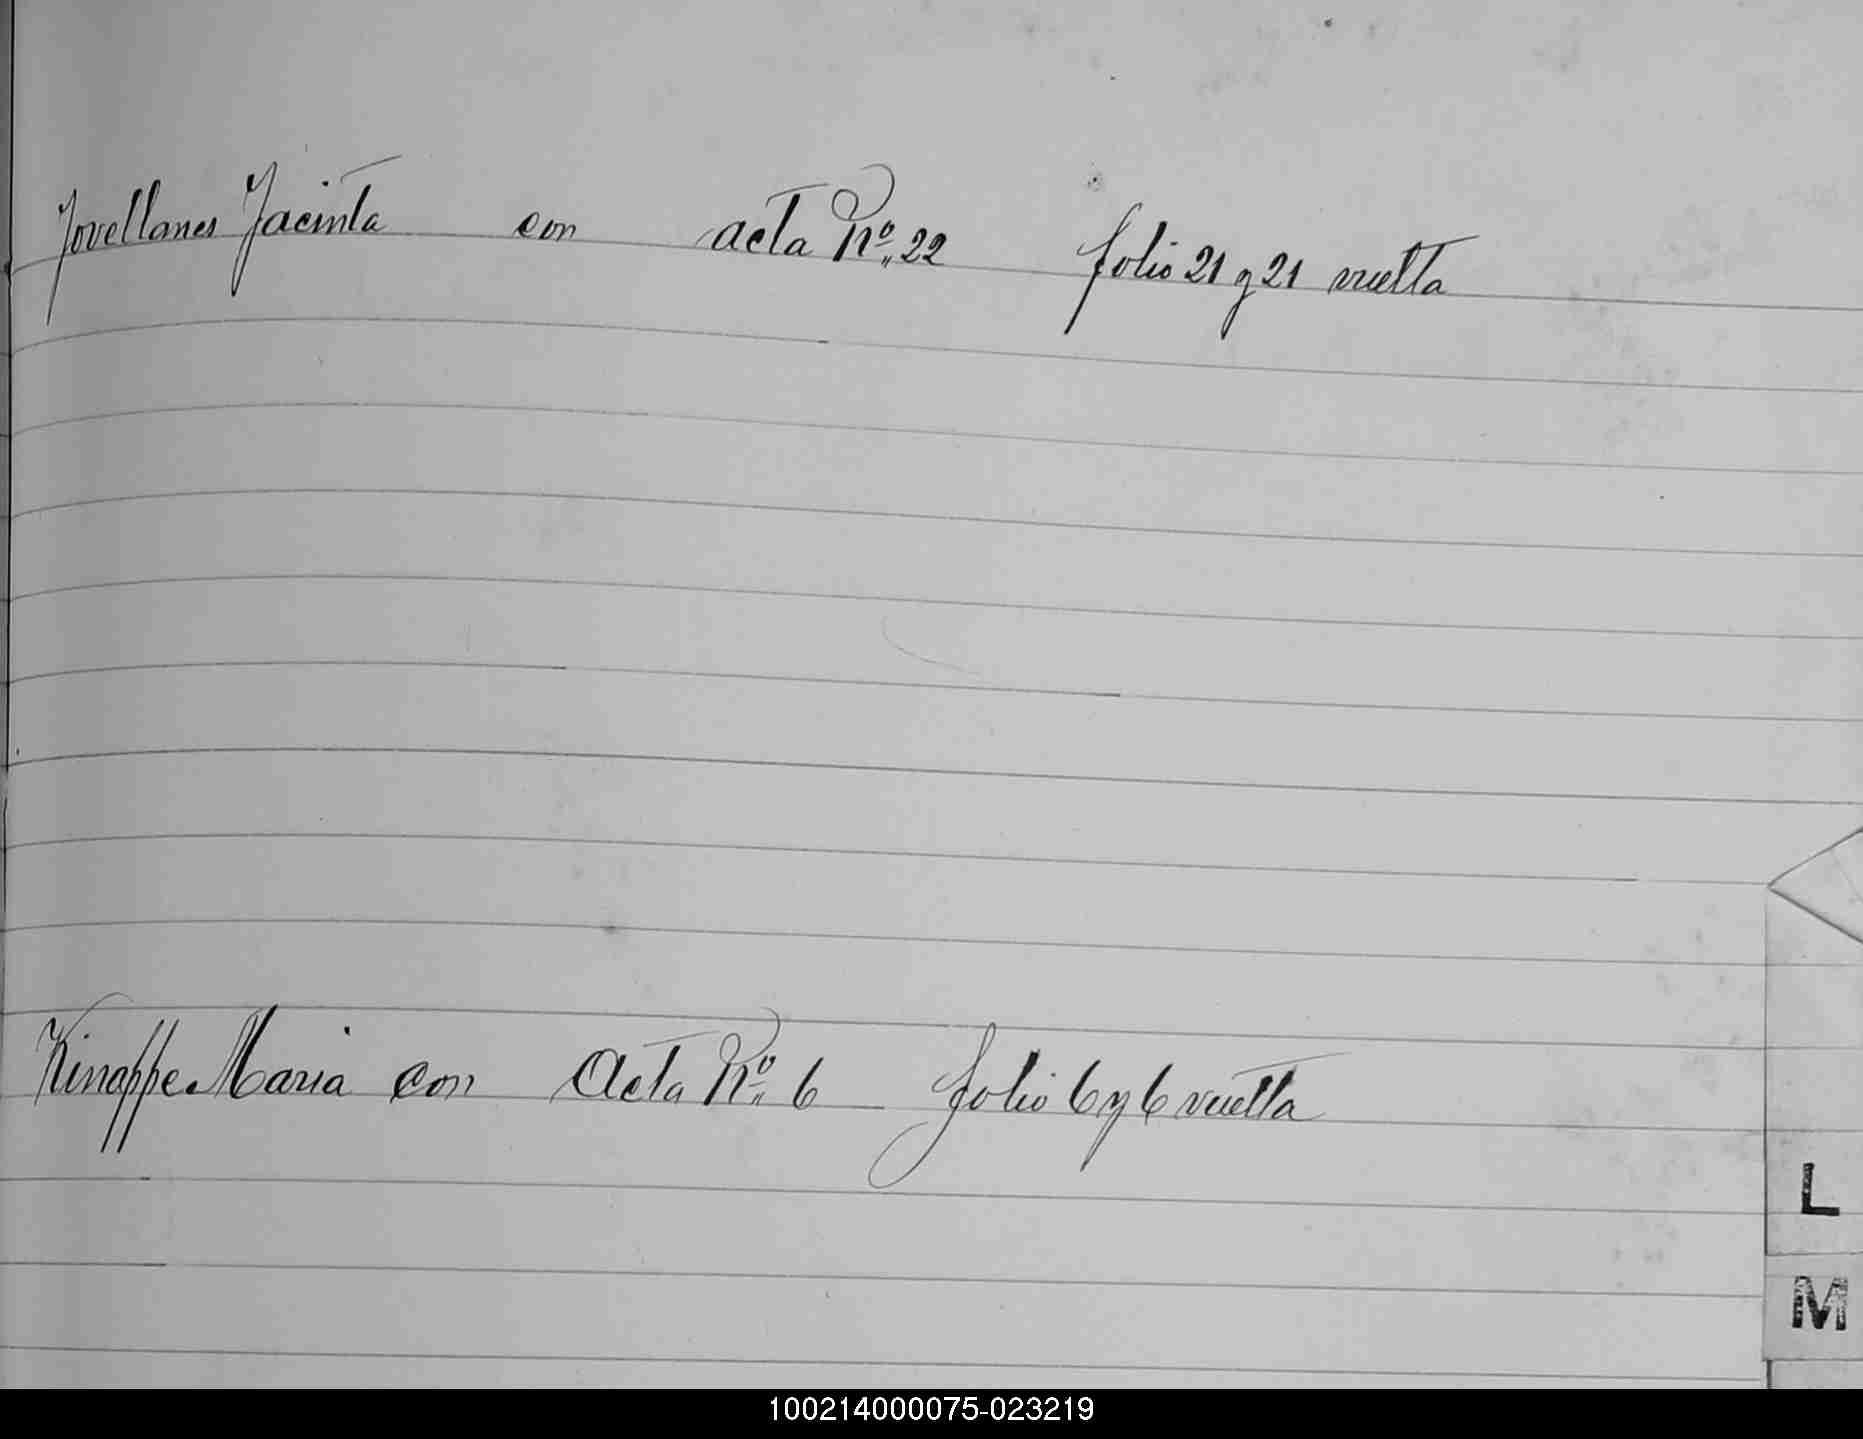 Jovellanes Jacinta con acta Nº 22 folio 21 y 21 vuelta
Kinappe Maria con Acta Nº 6 folio 6 y 6 vuelta
L
M
100214000075-023219